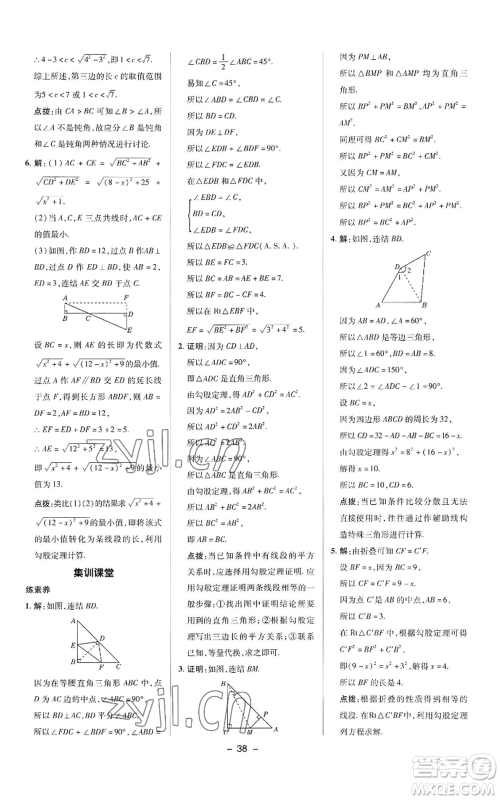 ∴4-3<c<√(4²-3²),即1<c<√7.
综上所述,第三边的长c的取值范围
为5<c<7或1<c<√7.
点拨:由CA>BC可知∠A不可能
是钝角,故应分∠B是钝角和
∠C是钝角两种情况进行讨论.
6.解:(1)AC+CE=√(BC²+AB²)+
√(CD²+DE²)=√((8-x)²+25)+
√(x²+1).
(2)当A,C,E三点共线时,AC+CE
的值最小.
(3)如图,作BD=12,过点B作AB⊥
BD,过点D作ED⊥BD,使AB=2,
ED=3,连结AE交BD于点C.
A
F
B
C
D
E
设BC=x,则AE的长即为代数式
√(x²+4)+√((12-x)²+9)的最小值.
过点A作AF∥BD交ED的延长线
于点F,得长方形ABDF,则AB=
DF=2,AF=BD=12.
∴EF=ED+DF=3+2=5.
∴AE=√(12²+5²)=13,
即√(x²+4)+√((12-x)²+9)的最小值
为13.
点拨:类比(1)(2)的结果求√(x²+4)+
√((12-x)²+9)的最小值,即将该式
的最小值转化为某线段的长,利用
勾股定理计算.
集训课堂
练素养
1.解:如图,连结BD.
A
E
D
B
F
C
因为在等腰直角三角形ABC中,
点D为AC边的中点,
所以BD⊥AC,BD平分∠ABC,
所以∠ABD=
∠CBD=1/2∠ABC=45°.
易知∠C=45°,
所以∠ABD=∠CBD=∠C.
所以BD=CD.
因为DE⊥DF,
所以∠EDB+∠BDF=90°.
又因为∠FDC+∠BDF=90°,
所以∠EDB=∠FDC.
在△EDB与△FDC中,
∠EBD=∠C,
BD=CD,
∠EDB=∠FDC,
所以△EDB≌△FDC(A.S.A.).
所以BE=FC=3.
所以AB=7,所以BC=7.
所以BF=BC-FC=7-3=4.
在Rt△EBF中,∠EBF=90°,
EF=√(BE²+BF²)=√(3²+4²)=5.
2.证明:因为CD⊥AD,
所以∠ADC=90°,
即△ADC是直角三角形.
由勾股定理,
得AD²+CD²=AC².
又因为AD²=2AB²-CD²,
所以AD²+CD²=2AB².
所以AC²=2AB².
因为∠ABC=90°,
所以△ABC是直角三角形.
由勾股定理,
得AB²+BC²=AC²,
所以AB²+BC²=2AB²,
故BC²=AB²,
所以AB=BC.
点拨:当已知条件中有线段的平方
关系时,应选择用勾股定理证明.应
用勾股定理证明两条线段相等的一
般步骤:①找出图中证明结论所要
用到的直角三角形;②根据勾股定
理写出三边长的平方关系;③联系
已知,等量代换,求之即可.
3.证明:如图,连结BM.
B
P
C
M
A
因为PM⊥AB,
所以△BMP和△AMP均为直角三
角形.
所以BP²+PM²=BM²,
AP²+PM²=AM².
同理可得BC²+CM²=BM².
所以BP²+PM²=BC²+CM².
又因为CM=AM,
所以CM²=AM²=AP²+PM².
所以BP²+PM²=BC²+AP²+PM².
所以BP²=BC²+AP².
4.解:如图,连结BD.
C
D
1
2
A
B
因为AB=AD,∠A=60°,
所以△ABD是等边三角形,
所以∠1=60°,BD=AB=8.
因为∠ADC=150°,
所以∠2=90°.
设BC=x,
因为四边形ABCD的周长为32,
所以CD=32-AD-AB-BC=16-x.
由勾股定理得x²=8²+(16-x)²,
解得x=10,
所以BC=10,CD=6.
点拨:当已知条件比较分散且无法
直接使用时,往往通过作辅助线构
造特殊三角形进行计算.
5.解:由折叠可知CF=C'F.
设BF=x,
则CF=C'F=9-x.
因为BC'=3,
所以在Rt△C'BF中,根据勾股定理
可得C'F²=BF²+C'B²,
即(9-x)²=x²+3²,
解得x=4.
所以BF的长是4.
点拨:根据折叠的性质得到线段相
等,然后在Rt△C'BF中利用勾股定
理列方程求解.
- 38 -
zyjl.cn
zyjl.cn
答案圈
MXQE.COM